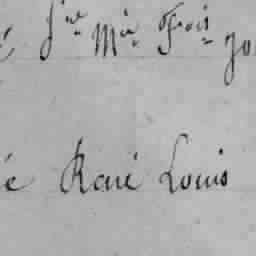 é Jne Mie Frois Jo
é René Louis